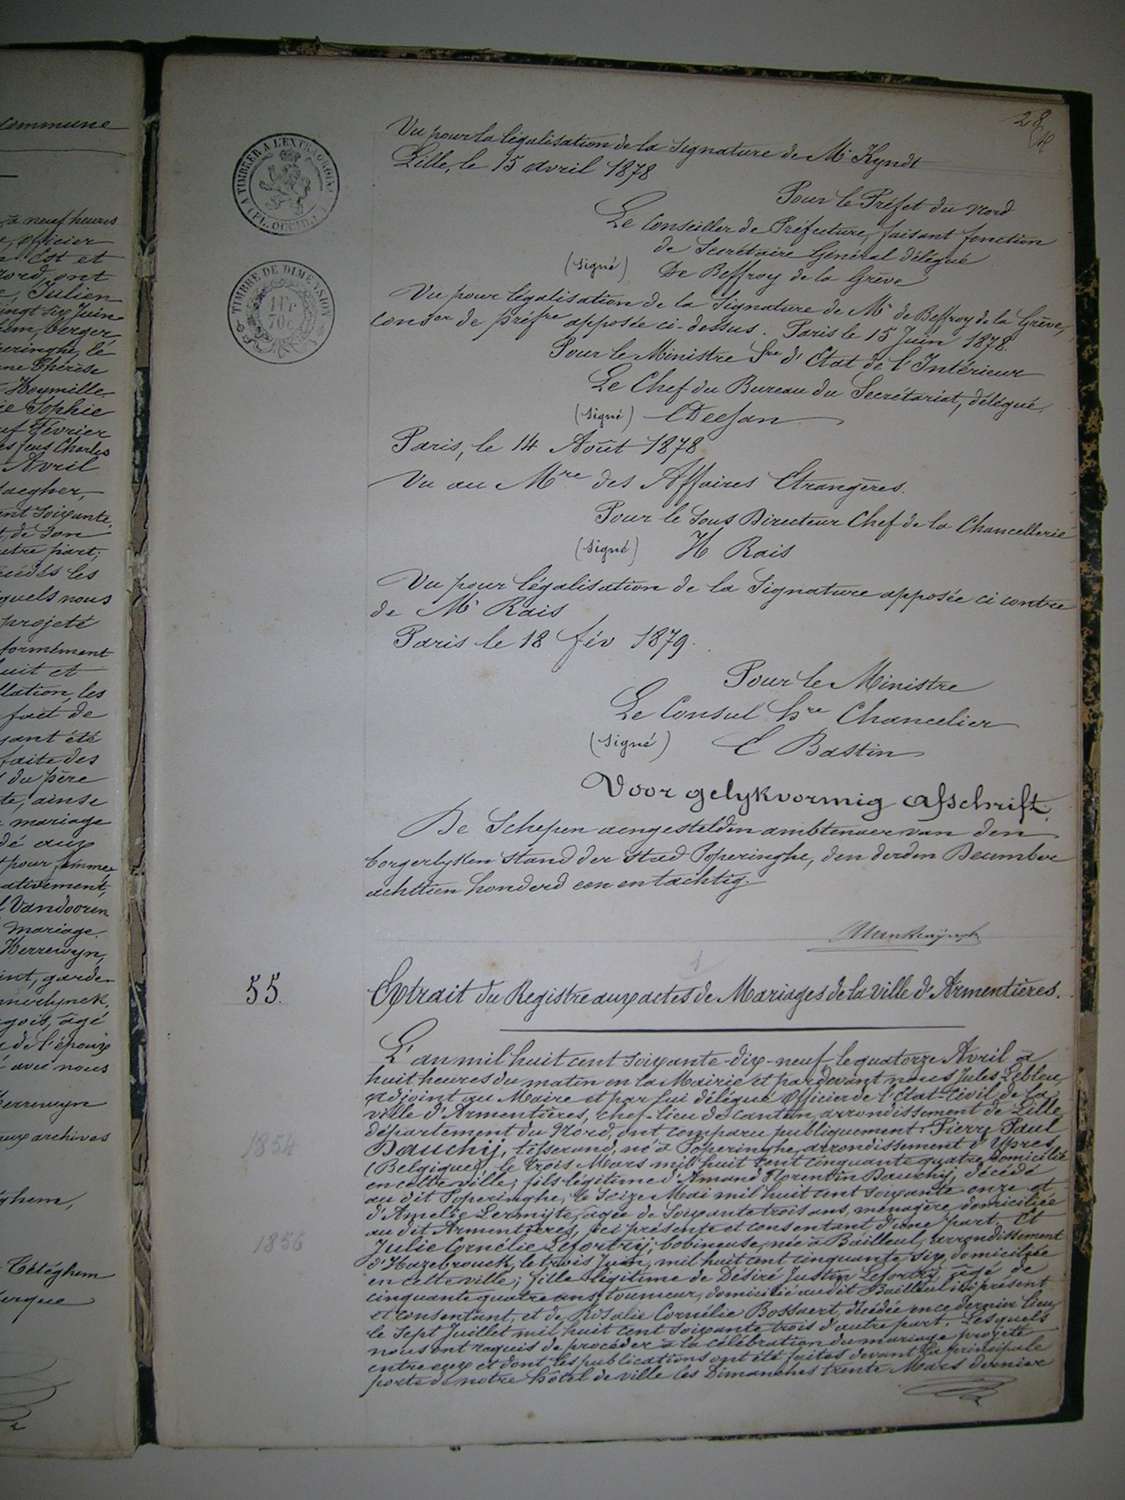 commune
à neuf heures
officier
Est et
Nord, ont
Julien
vingt six Juin
berger
Poperinghe, le
Thérèse
Houymille
Sophie
neuf Février
feus Charles
Avril
soixante
de son
autre part;
les
lesquels nous
projeté
conformément
huit et
les
fait de
ayant été
faite des
du père
ainsi
mariage
aux
pour femme
Vandooren
mariage.
Herrewyn,
garde
âgé
de l'épouse
avec nous
Herrewyn
aux archives
28
A TIMBRER A L'EXTRAORDIN.
FL. OCCID.
TIMBRE DE DIMENSION
1 Fr
70c
Vu pour la légalisation de la signature de Mr Kyndt
Lille, le 15 avril 1878
Pour le Préfet du Nord
Le Conseiller de Préfecture, faisant fonction
de Secrétaire Général délégué
(signé) De Beffroy de la Grève
Vu pour légalisation de la Signature de Mr de Beffroy de la Grève,
conser de préfre apposée ci-dessus. Paris le 15 Juin 1878
Pour le Ministre Sre d'Etat de l'Intérieur
Le Chef du Bureau du Secrétariat, délégué,
(signé)
Paris, le 14 Août 1878
Vu au Mre des Affaires Etrangères.
Pour le Sous Directeur Chef de la Chancellerie
(signé) H Rais
Vu pour légalisation de la Signature apposée ci contre
de Mr Rais
Paris le 18 fév 1879.
Pour le Ministre
Le Consul hre Chancelier
(signé) E Bastin
Voor gelykvormig afschrift.
De Schepen aengestelden ambtenaer van den
borgerlyken stand der stad Poperinghe, den derden December
achttien honderd een en tachtig.
55.
Extrait du Registre aux actes de Mariages de la ville d'Armentières.
L'an mil huit cent soixante-dix-neuf le quatorze Avril à
huit heures du matin en la Mairie et pardevant nous Jules Lebleu,
adjoint au Maire et par lui délégué Officier de l'Etat-Civil de la
ville d'Armentières, chef-lieu de canton, arrondissement de Lille
département du Nord, ont comparu publiquement Pierre Paul
Bauchy, tisserand, né à Poperinghe, arrondissement d'Ypres
1854
(Belgique), le trois Mars mil huit cent cinquante quatre, domicilié
en cette ville; fils légitime d'Amand Florentin Bauchy, décédé
au dit Poperinghe, le seize Mai mil huit cent soixante onze et
d'Amélie Lermyte, âgée de soixante trois ans, ménagère domiciliée
au dit Armentières, ici présente et consentant d'une part, Et
Julie Cornélie Lefortry; bobineuse, née à Bailleul, arrondissement
1856
d'Hazebrouck, le trois Juin, mil huit cent cinquante six, domiciliée
en cette ville; fille légitime de Désiré Justin Lefortry âgé de
cinquante quatre ans, tourneur, domicilié au dit Bailleul, ici présent
et consentant, et de Rosalie Cornélie Bossaert, décédée en ce dernier lieu,
le sept Juillet mil huit cent soixante trois d'autre part. Lesquels
nous ont requis de procéder à la célébration du mariage projeté
entre eux et dont les publications ont été faites devant la principale
porte de notre hôtel de ville les Dimanches trente Mars dernier